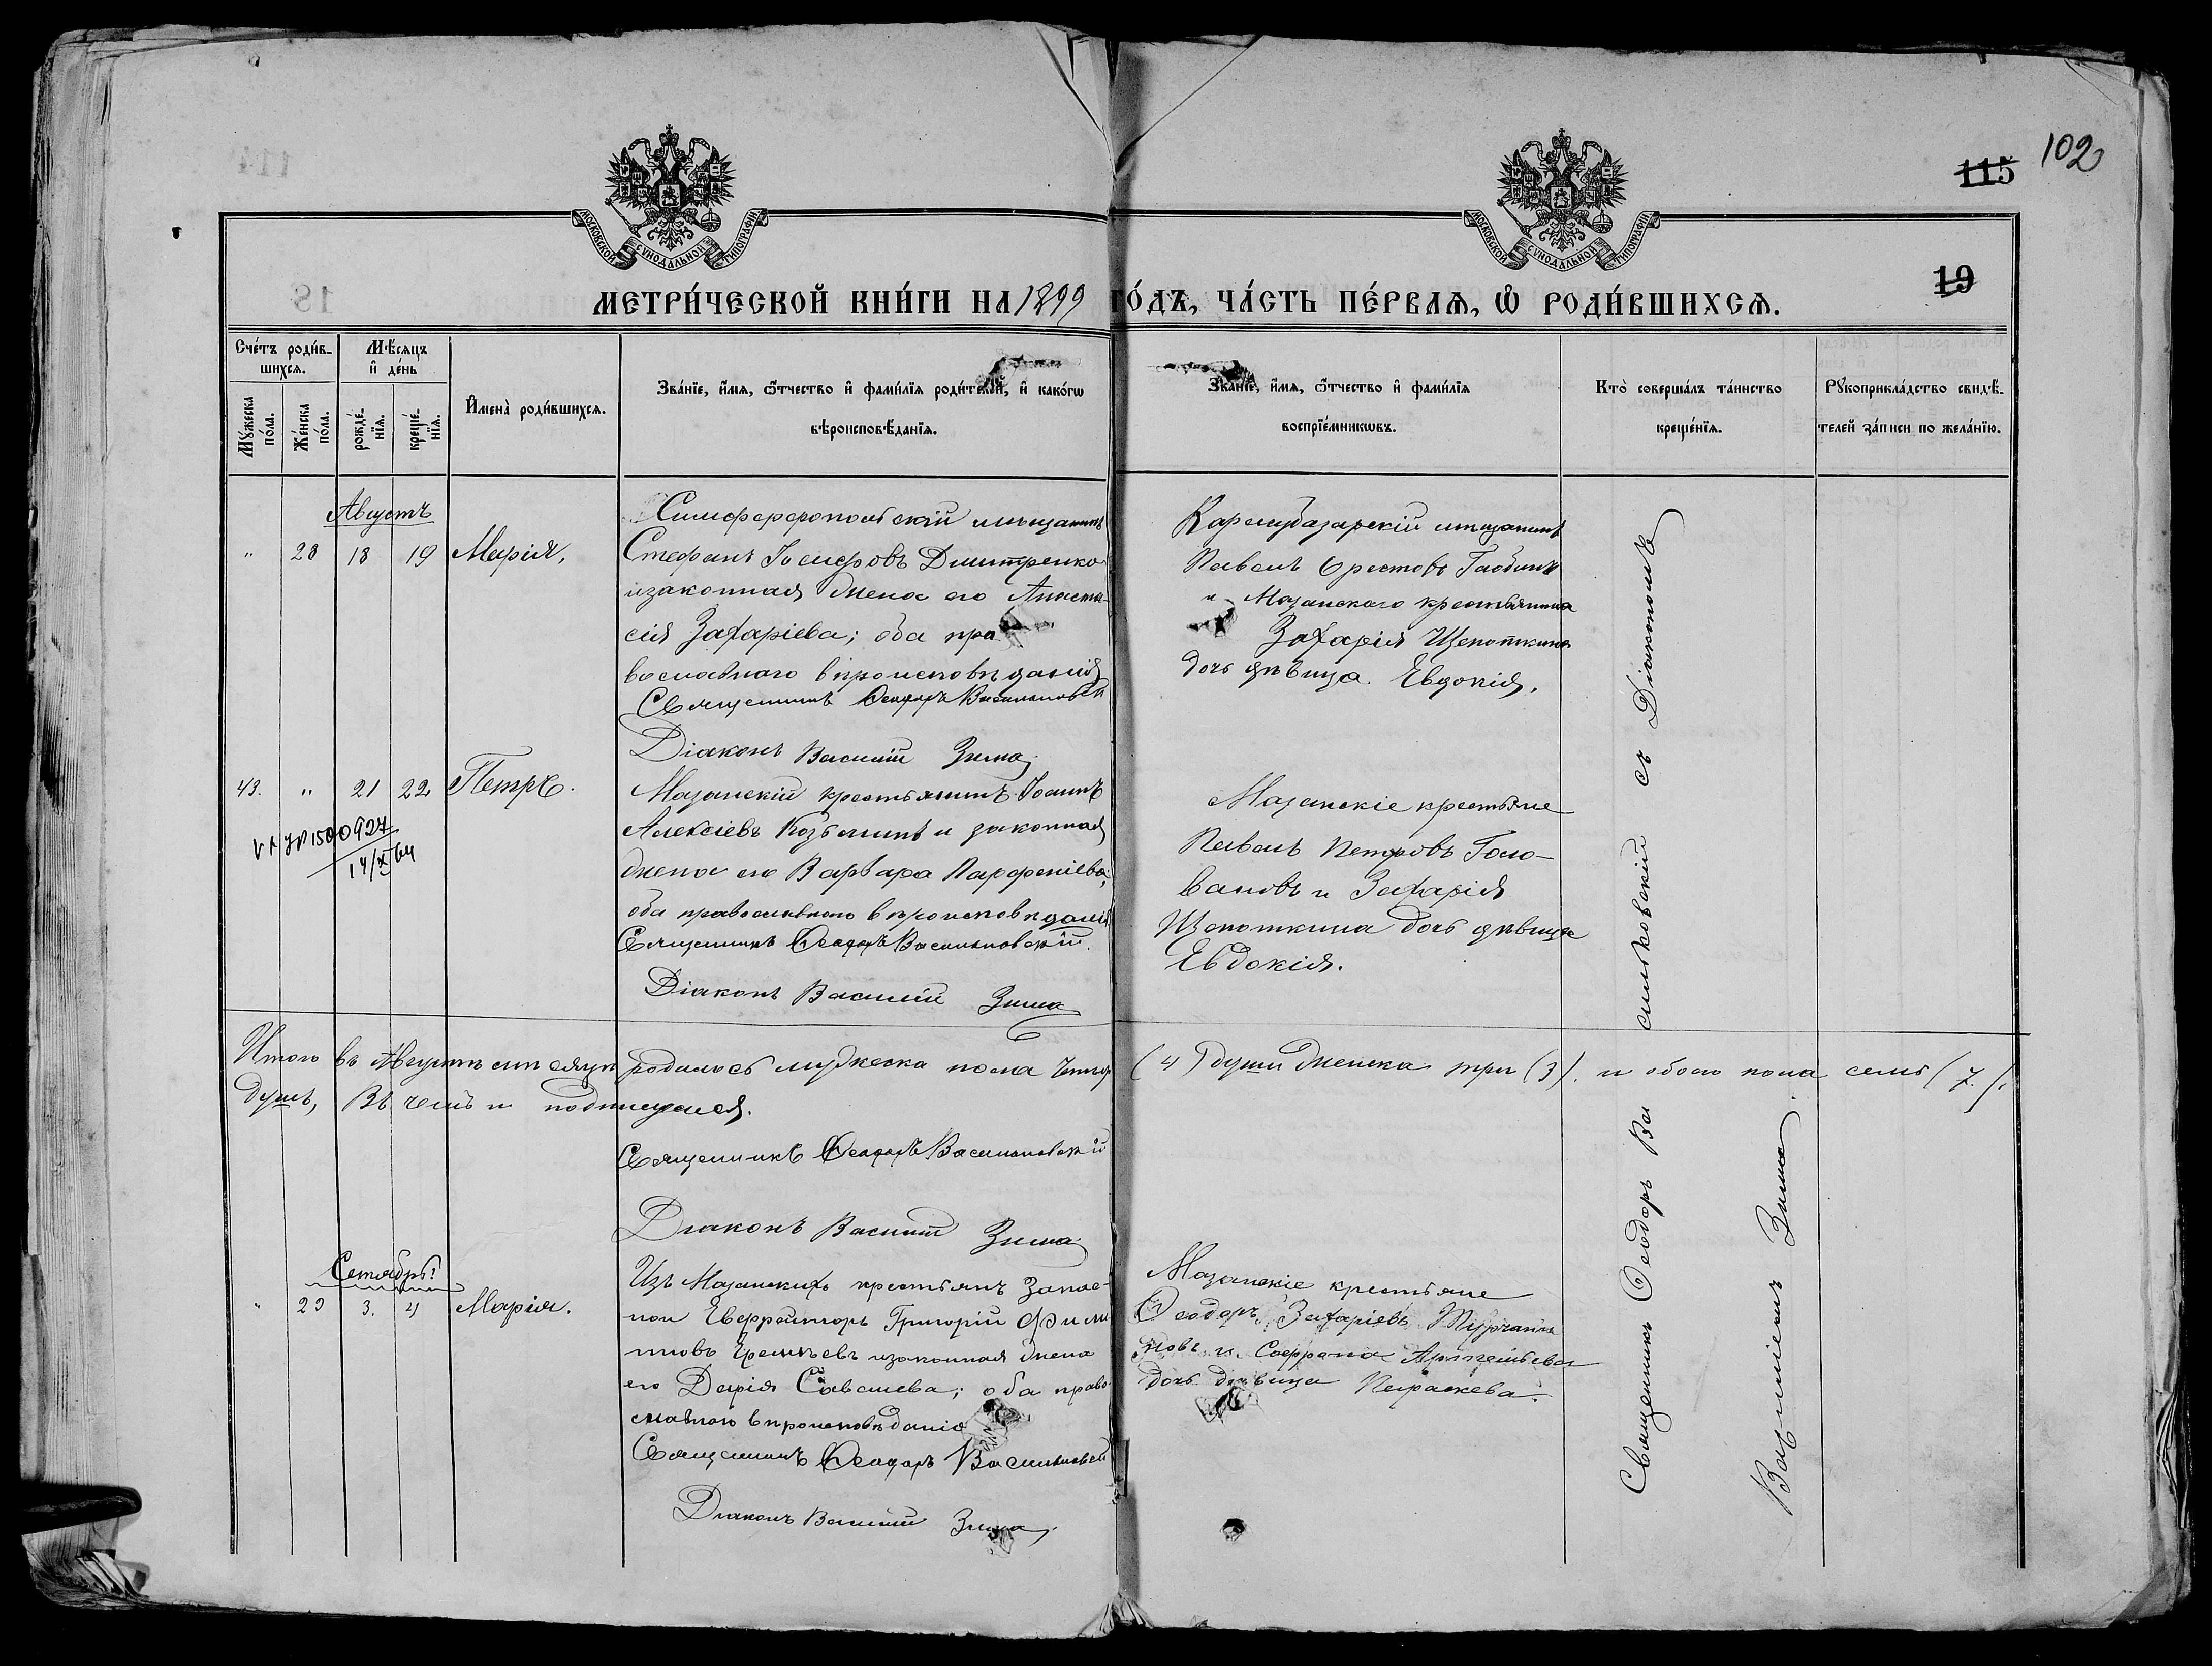 102
115
19
МОСКОВСКОЙ СУНОДАЛЬНОЙ ТИПОГРАФІИ
МОСКОВСКОЙ СУНОДАЛЬНОЙ ТИПОГРАФІИ
МЕТРИ́ЧЕСКОЙ КНИ́ГИ НА 1899 ГО́ДЪ, ЧА́СТЬ ПЕ́РВАѦ, Ѿ РОДИ́ВШИХСѦ.
Сче́тъ роди́в-
шихсѧ.
Мѣ́сяцъ
и҆ де́нь
Мꙋ́жеска по́ла.
Же́нска по́ла.
рожде́-
нїѧ.
креще́-
нїѧ.
И҆мена̀ роди́вшихсѧ.
Зва́нїе, и҆́мѧ, ѻ҆́тчество и҆ фами́лїѧ роди́телей, и҆ како́гѡ
вѣроисповѣ́данїѧ.
Зва́нїе, и҆́мѧ, ѻ҆́тчество и҆ фами́лїѧ
воспрїе́мникѡвъ.
Кто̀ соверша́лъ та́инство
креще́нїѧ.
Рꙋкоприкла́дство свидѣ́-
телей за́писи по жела́нїю.
Августъ
" 28 18 19 Марія,
Симферопольскій мѣщанинъ
Стефанъ Іосифовъ Дмитренко
и законная жена его Анаста-
сія Захаріева; оба пра
вославнаго вѣроисповѣданія
Священникъ Ѳеодоръ Васильковскій
Діаконъ Василій Зима
Карасубазарскій мѣщанинъ
Павелъ Орестовъ
и Мазанскаго крестьянина
Захарія Щепоткина
дочь дѣвица Евдокія.
43. " 21 22 Петръ.
1500927
14/X 64
Мазанскій крестьянинъ Іоаннъ
Алексіевъ Козьминъ и законная
жена его Варвара Парфеніева;
оба православнаго вѣроисповѣданія
Священникъ Ѳеодоръ Васильковскій.
Діаконъ Василій Зима
Мазанскіе крестьяне
Павелъ Петровъ Голо-
вановъ и Захарія
Щепоткина дочь дѣвица
Евдокія.
Итого въ Августѣ мѣсяцѣ родилось мужеска пола четыре (4) души женска три (3). и обоего пола семь (7).
душъ, Въ чемъ и подписуемся.
Священникъ Ѳеодоръ Васильковскій
Діаконъ Василій Зима
Сентябрь
" 29 3. 4 Марія.
Изъ Мазанскихъ крестьянъ Запас-
ной Ефрейторъ Григорій Фили
пповъ и законная жена
его Дарія Савельева; оба право
славнаго вѣроисповѣданія
Священникъ Ѳеодоръ Васильковскій
Діаконъ Василій Зима
Мазанскіе крестьяне
Ѳеодоръ Захаріевъ Турчани
новъ и
дочь дѣвица Параскева.
Священникъ Ѳеодоръ Васильковскій съ Діакономъ
Василіемъ Зима.